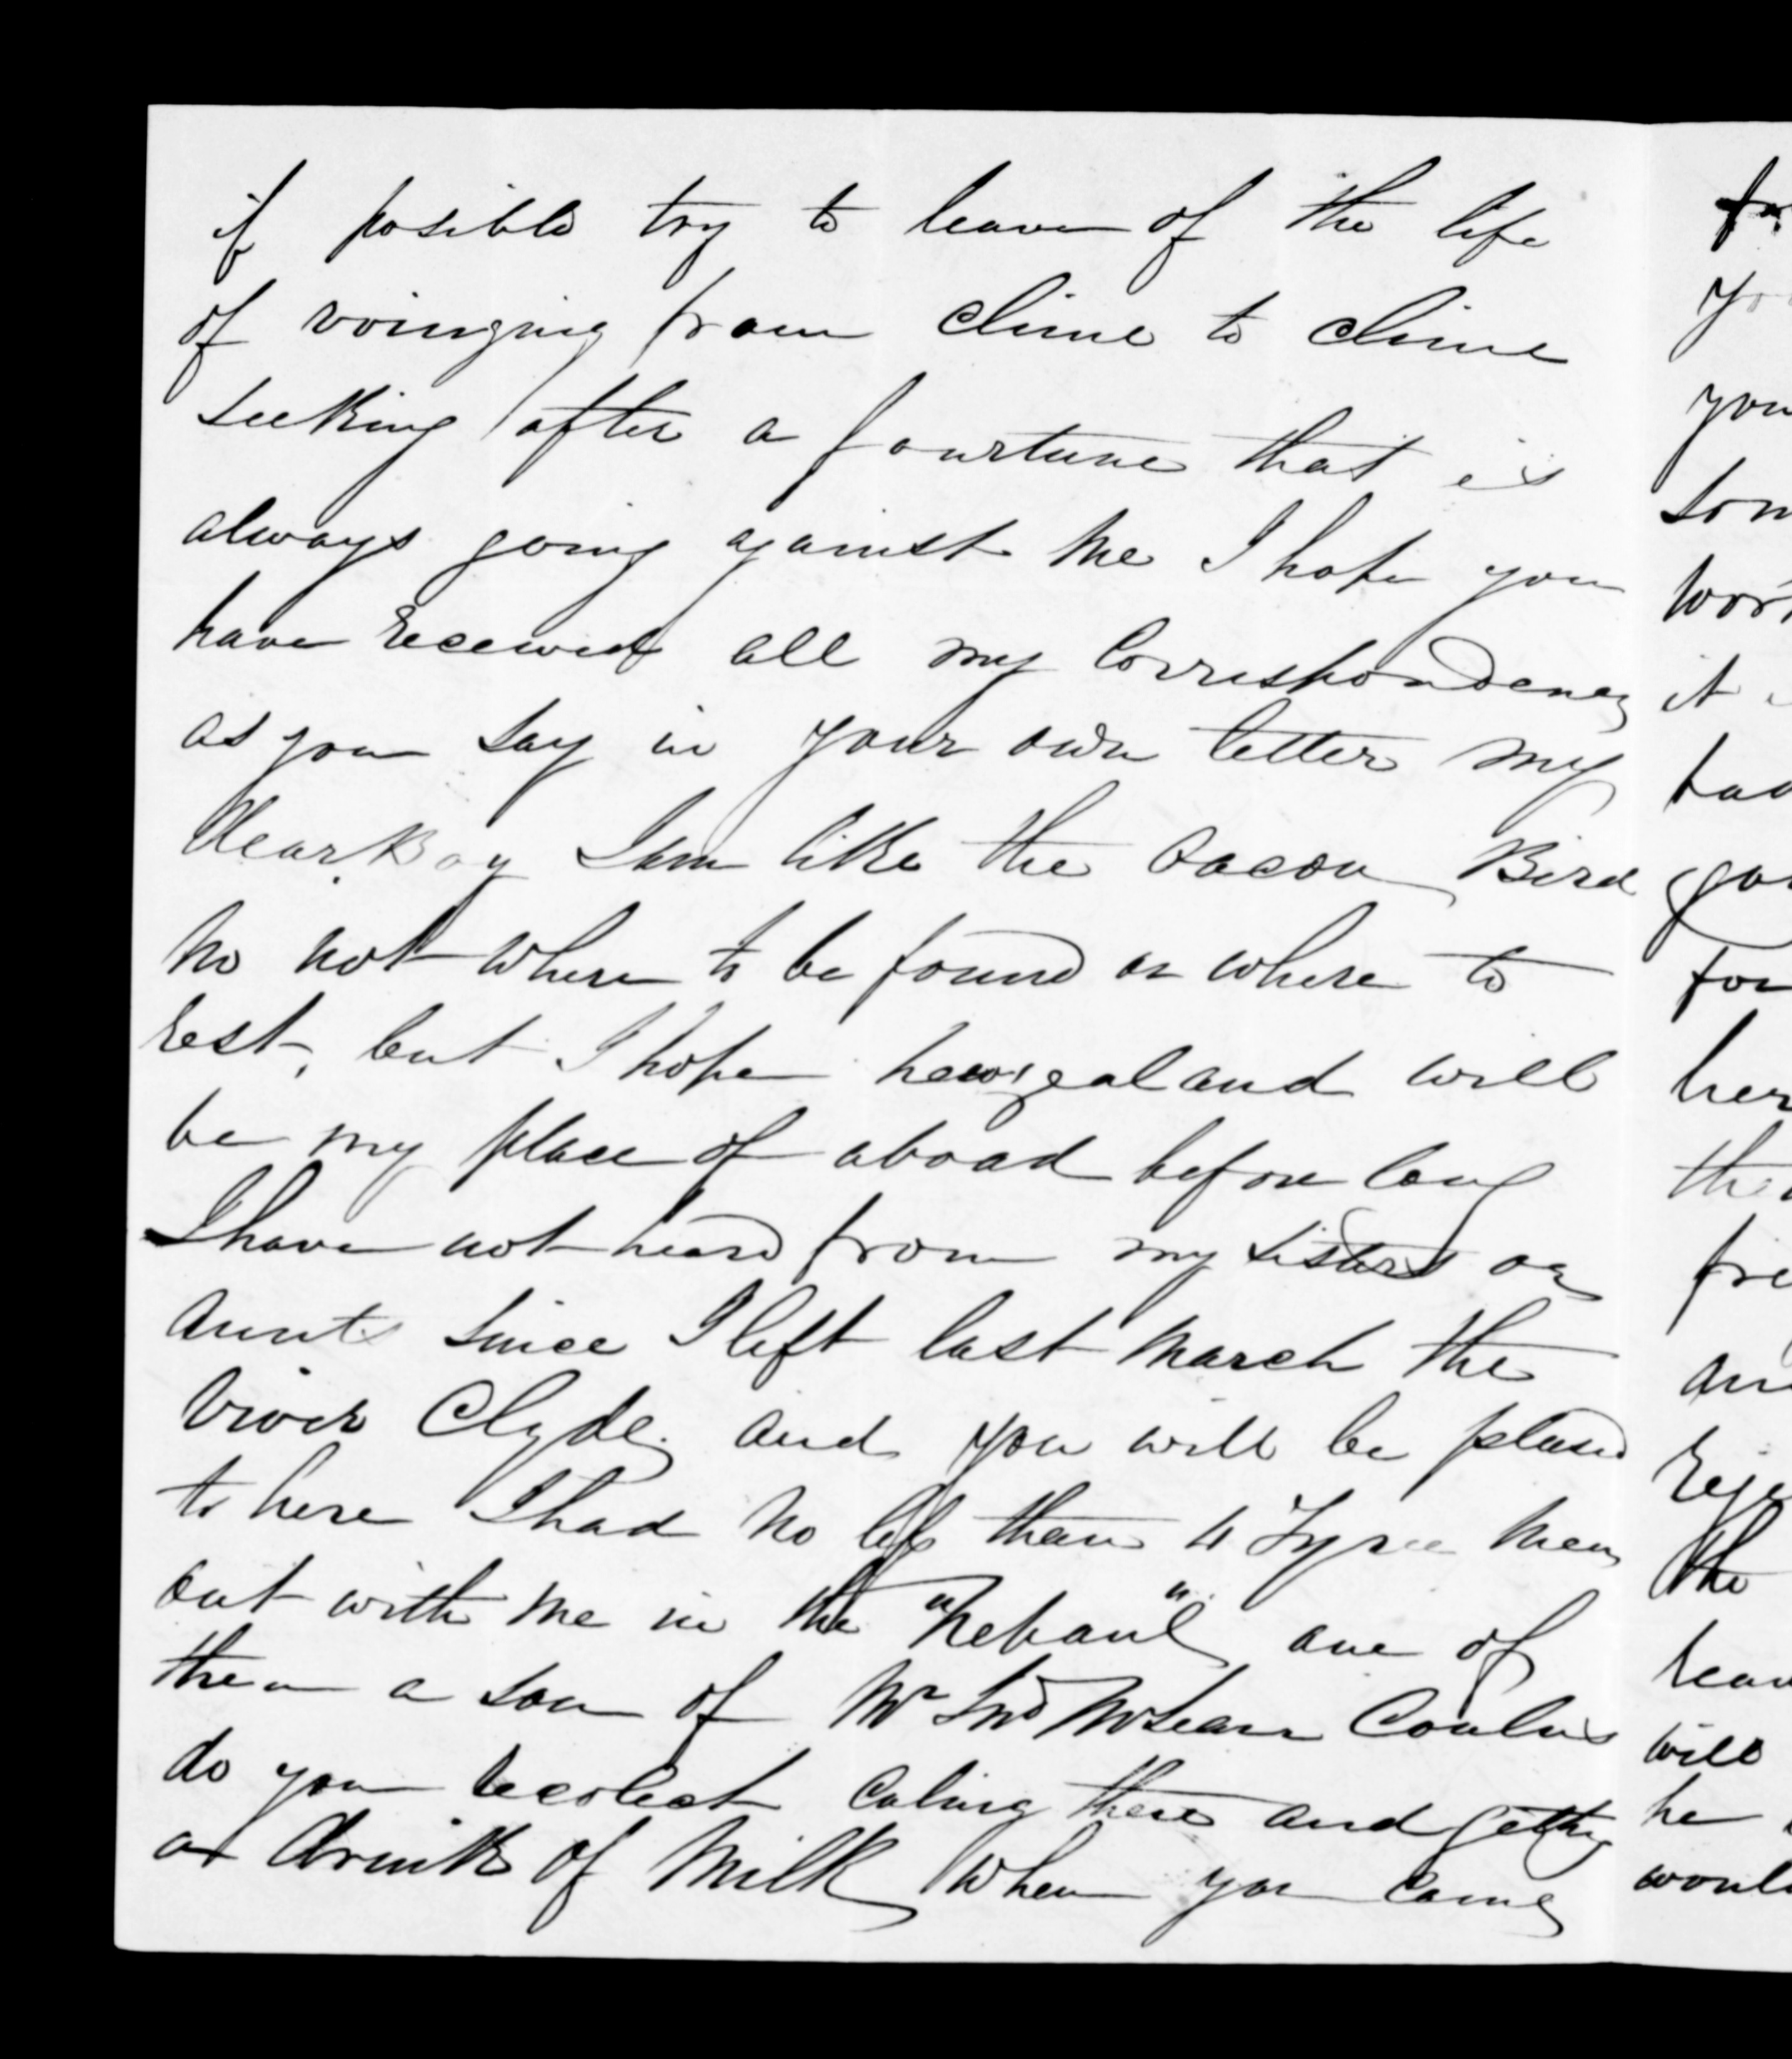 if posible try to leave of the life
of roinging from clime to clime
seeking after a fourtune that is
always going against me I hope you
have received all my Correspondency
as you say in your own letter my
dear Boy I am like the Bacon Bird
no not where to be found or where to
rest, but I hope newzealand will
be my place of aboad before long
I have not heard from my sisters or
aunts since I left last March the
River Clyde, and you will be pleased
to here I had no less than 4 Tyree men
out with me in the "Nebaul" one of
them a son of Mr Jno McLean
do you recolect caling there and getting
a drink of Milk when you came